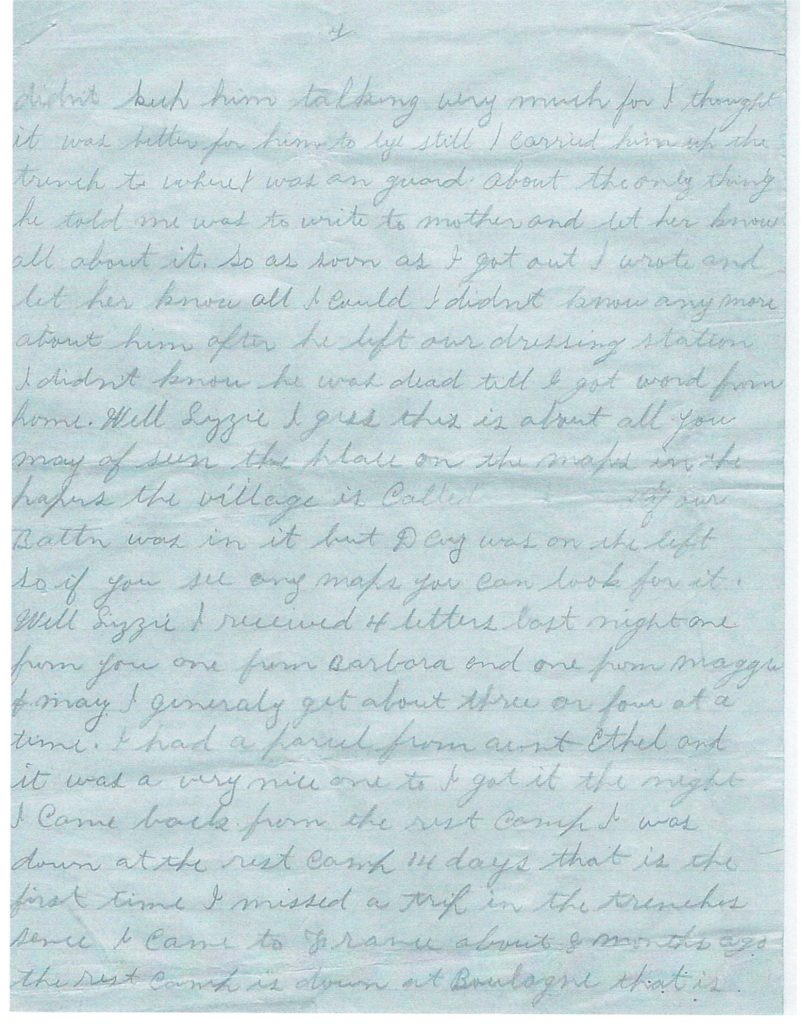 4
didn't keep him talking very much for I thought
it was better for him to lye still I carried him up the
trench to where I was on guard. about the only thing
he told me was to write to mother and let her know
all about it. So as soon as I got out I wrote and
let her know all I could I didn't know any more
about him after he left our dressing station
I didn't know he was dead till I got word from
home. Well Lizzie I gess this is about all you
may of seen the place on the maps in the
papers the village is Called our
Battn was in it but D Coy was on the left
so if you see any maps you can look for it.
Well Lizzie I received 4 letters last night one
from you one from Barbara and one from Maggie
& may I generaly get about three or four at a
time. I had a parcel from aunt Ethel and
it was a very nice one to I got it the night
I Came back from the rest Camp I was
down at the rest Camp 14 days that is the
first time I missed a trip in the trenches
sence I Came to France about months ago
the rest Camp is down at Boulogne that is